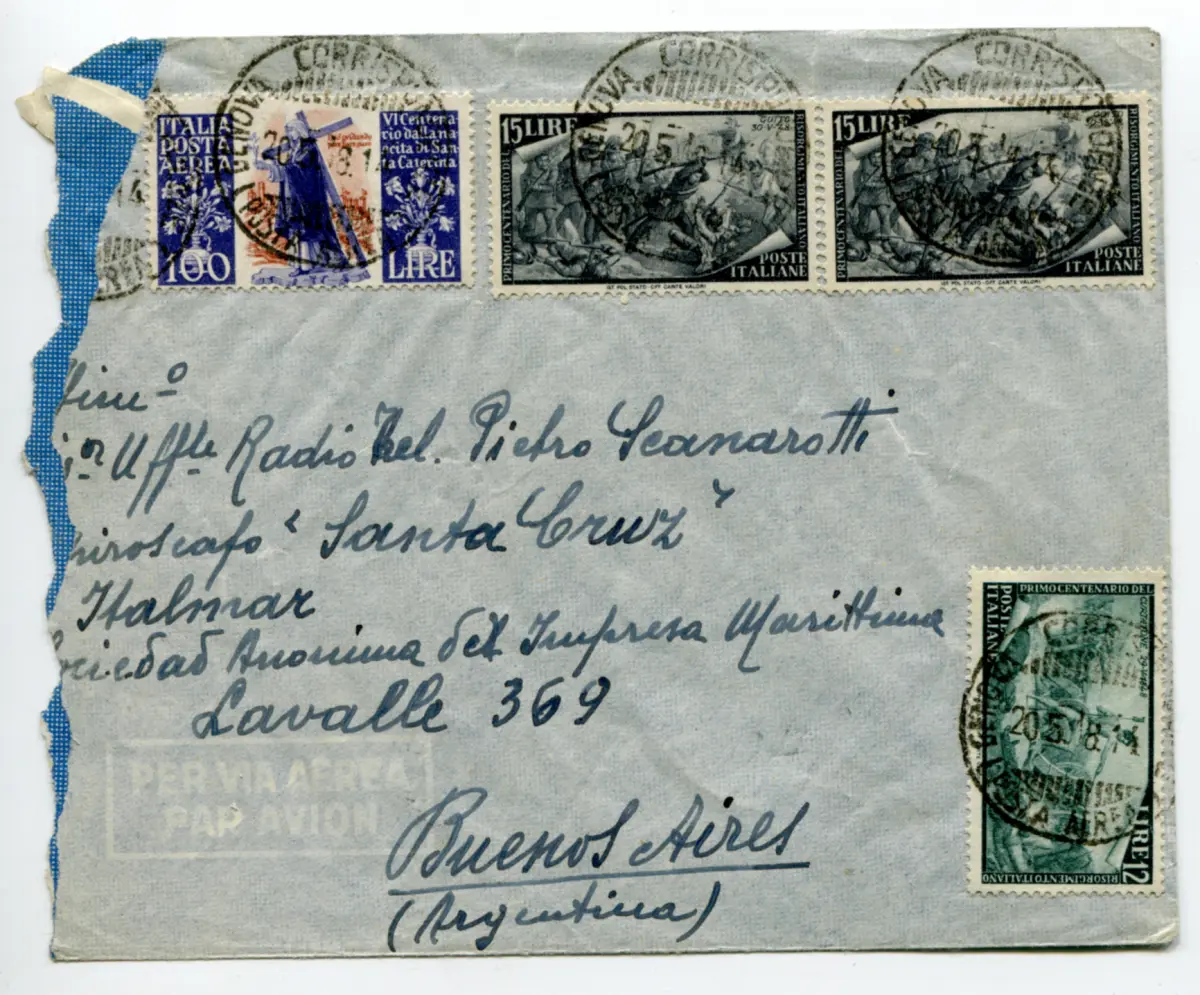 ITALIA
POSTA
AEREA
100
VI Centena-
rio dalla na
scita di San
ta Caterina
LIRE
15 LIRE
PRIMO CENTENARIO DEL
RISORGIMENTO ITALIANO
POSTE
ITALIANE
IST. POL. STATO - OFF. CARTE VALORI
15 LIRE
PRIMO CENTENARIO DEL
RISORGIMENTO ITALIANO
POSTE
ITALIANE
IST. POL. STATO - OFF. CARTE VALORI
GENOVA CORRISP
20 5
GENOVA CORRISP
20.5.
GENOVA CORRISP
20.5
Uff.le Radiotel. Pietro Scanarotti
piroscafo "Santa Cruz"
Italmar
Sociedad Anonima del Impresa Marittima
Lavalle 369
PER VIA AEREA
PAR AVION
Buenos Aires
(Argentina)
PRIMO CENTENARIO DEL
RISORGIMENTO ITALIANO
POSTE
ITALIANE
LIRE 12
GENOVA CORR
20.5. 8-14
POSTA AEREA